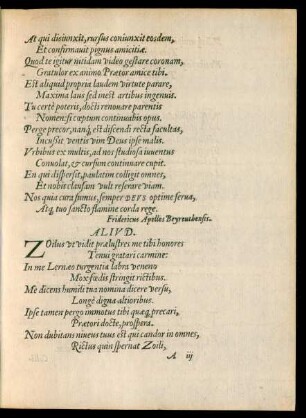 At qui disiunxit, rursus coniunxit eosdem,
Et confirmauit pignus amicitiæ.
Quod te igitur nitidam video gestare coronam,
Gratulor ex animo Prætor amice tibi.
Est aliquid propria laudem virtute parare,
Maxima laus sed inest artibus ingenuis.
Tu certè poteris, docti renouare parentis
Nomen: si cœptum continuabis opus.
Perge precor, nanq; est discendi recta facultas,
Incussit ventis vim Deus ipse malis.
Vrbibus ex multis, ad nos studiosa iuuentus
Conuolat, & cursum continuare cupit.
En qui dispersit, paulatim colligit omnes,
Et nobis clausum vult reserare viam.
Nos quia cura sumus, semper DEVS optime serua,
Atq; tuo sancto flamine corda rege.
Fridericus Apelles Beyreuthensis.
ALIVD.
Zoilus vt vidit prælustres me tibi honores
Tenui gratari carmine:
In me Lernæo turgentia labra veneno
Mox fœdis stringit rictibus.
Me dicens humili tua nomina dicere versu,
Longè digna altioribus.
Ipse tamen pergo immotus tibi quæq; precari,
Prætori docte, prospera.
Non dubitans niueus tuus est qui candor in omnes,
Rictus quin spernat Zoili,
A iij